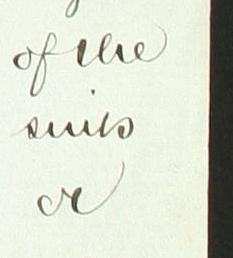 of the
suits
or